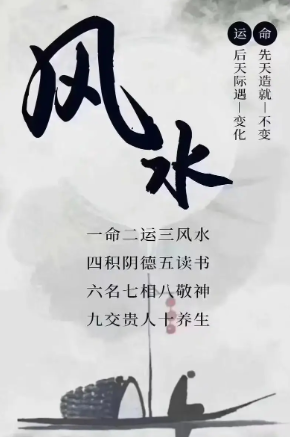 命 先天造就—不变
运 后天际遇—变化
风水
一命二运三风水
四积阴德五读书
六名七相八敬神
九交贵人十养生